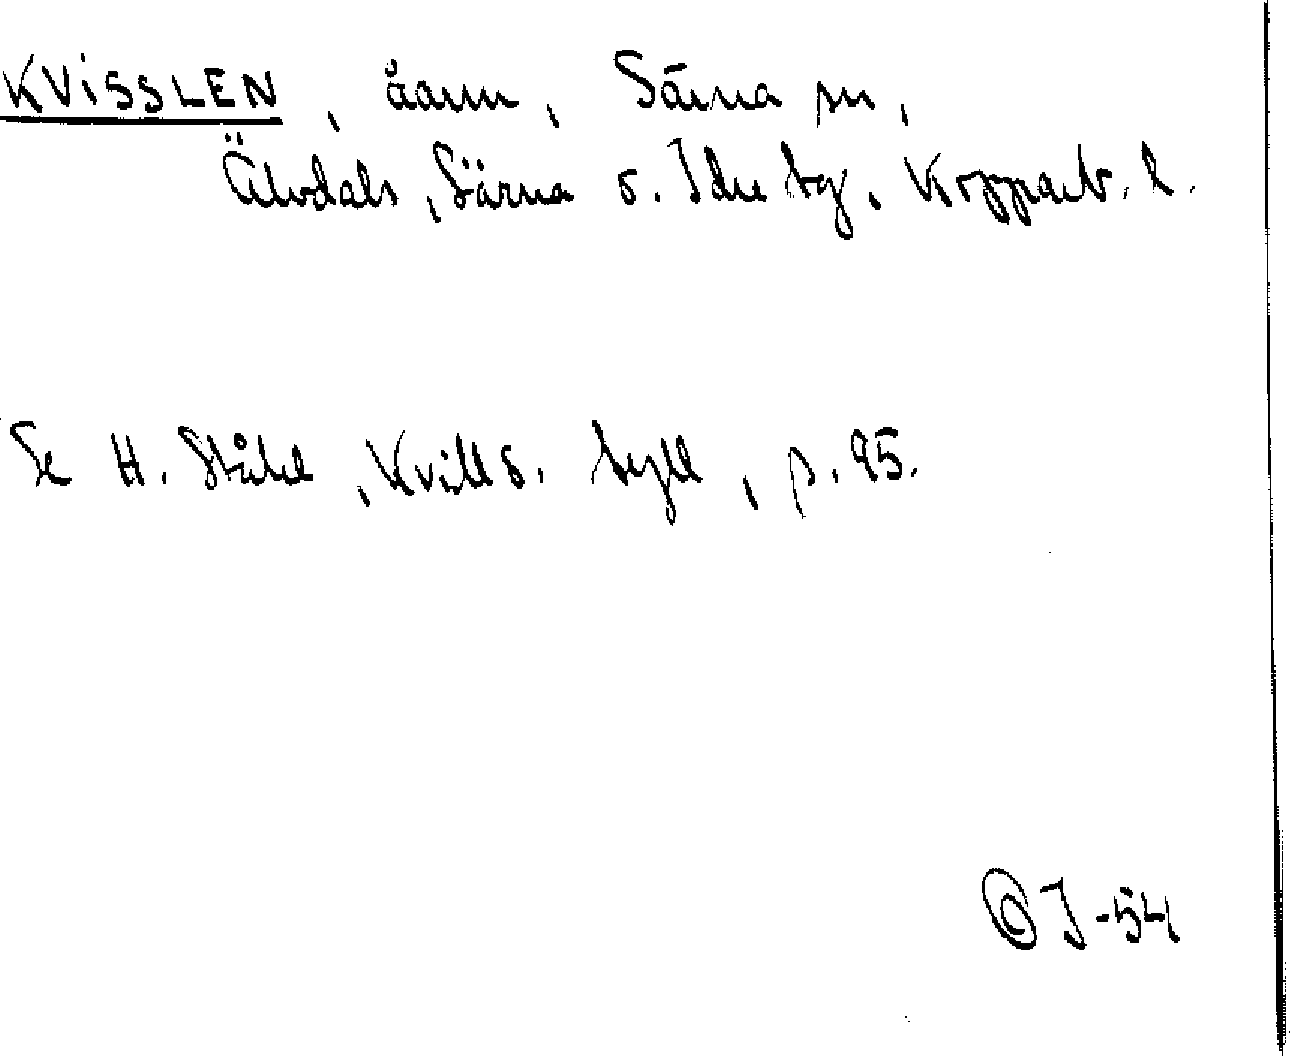 KVISSLEN, åann, Särna sn,
Älvdals, Särna o. Idre tg, Kopparb. l.
Se H. Ståhl, Kvill o. tyll, p. 95.
© J -54